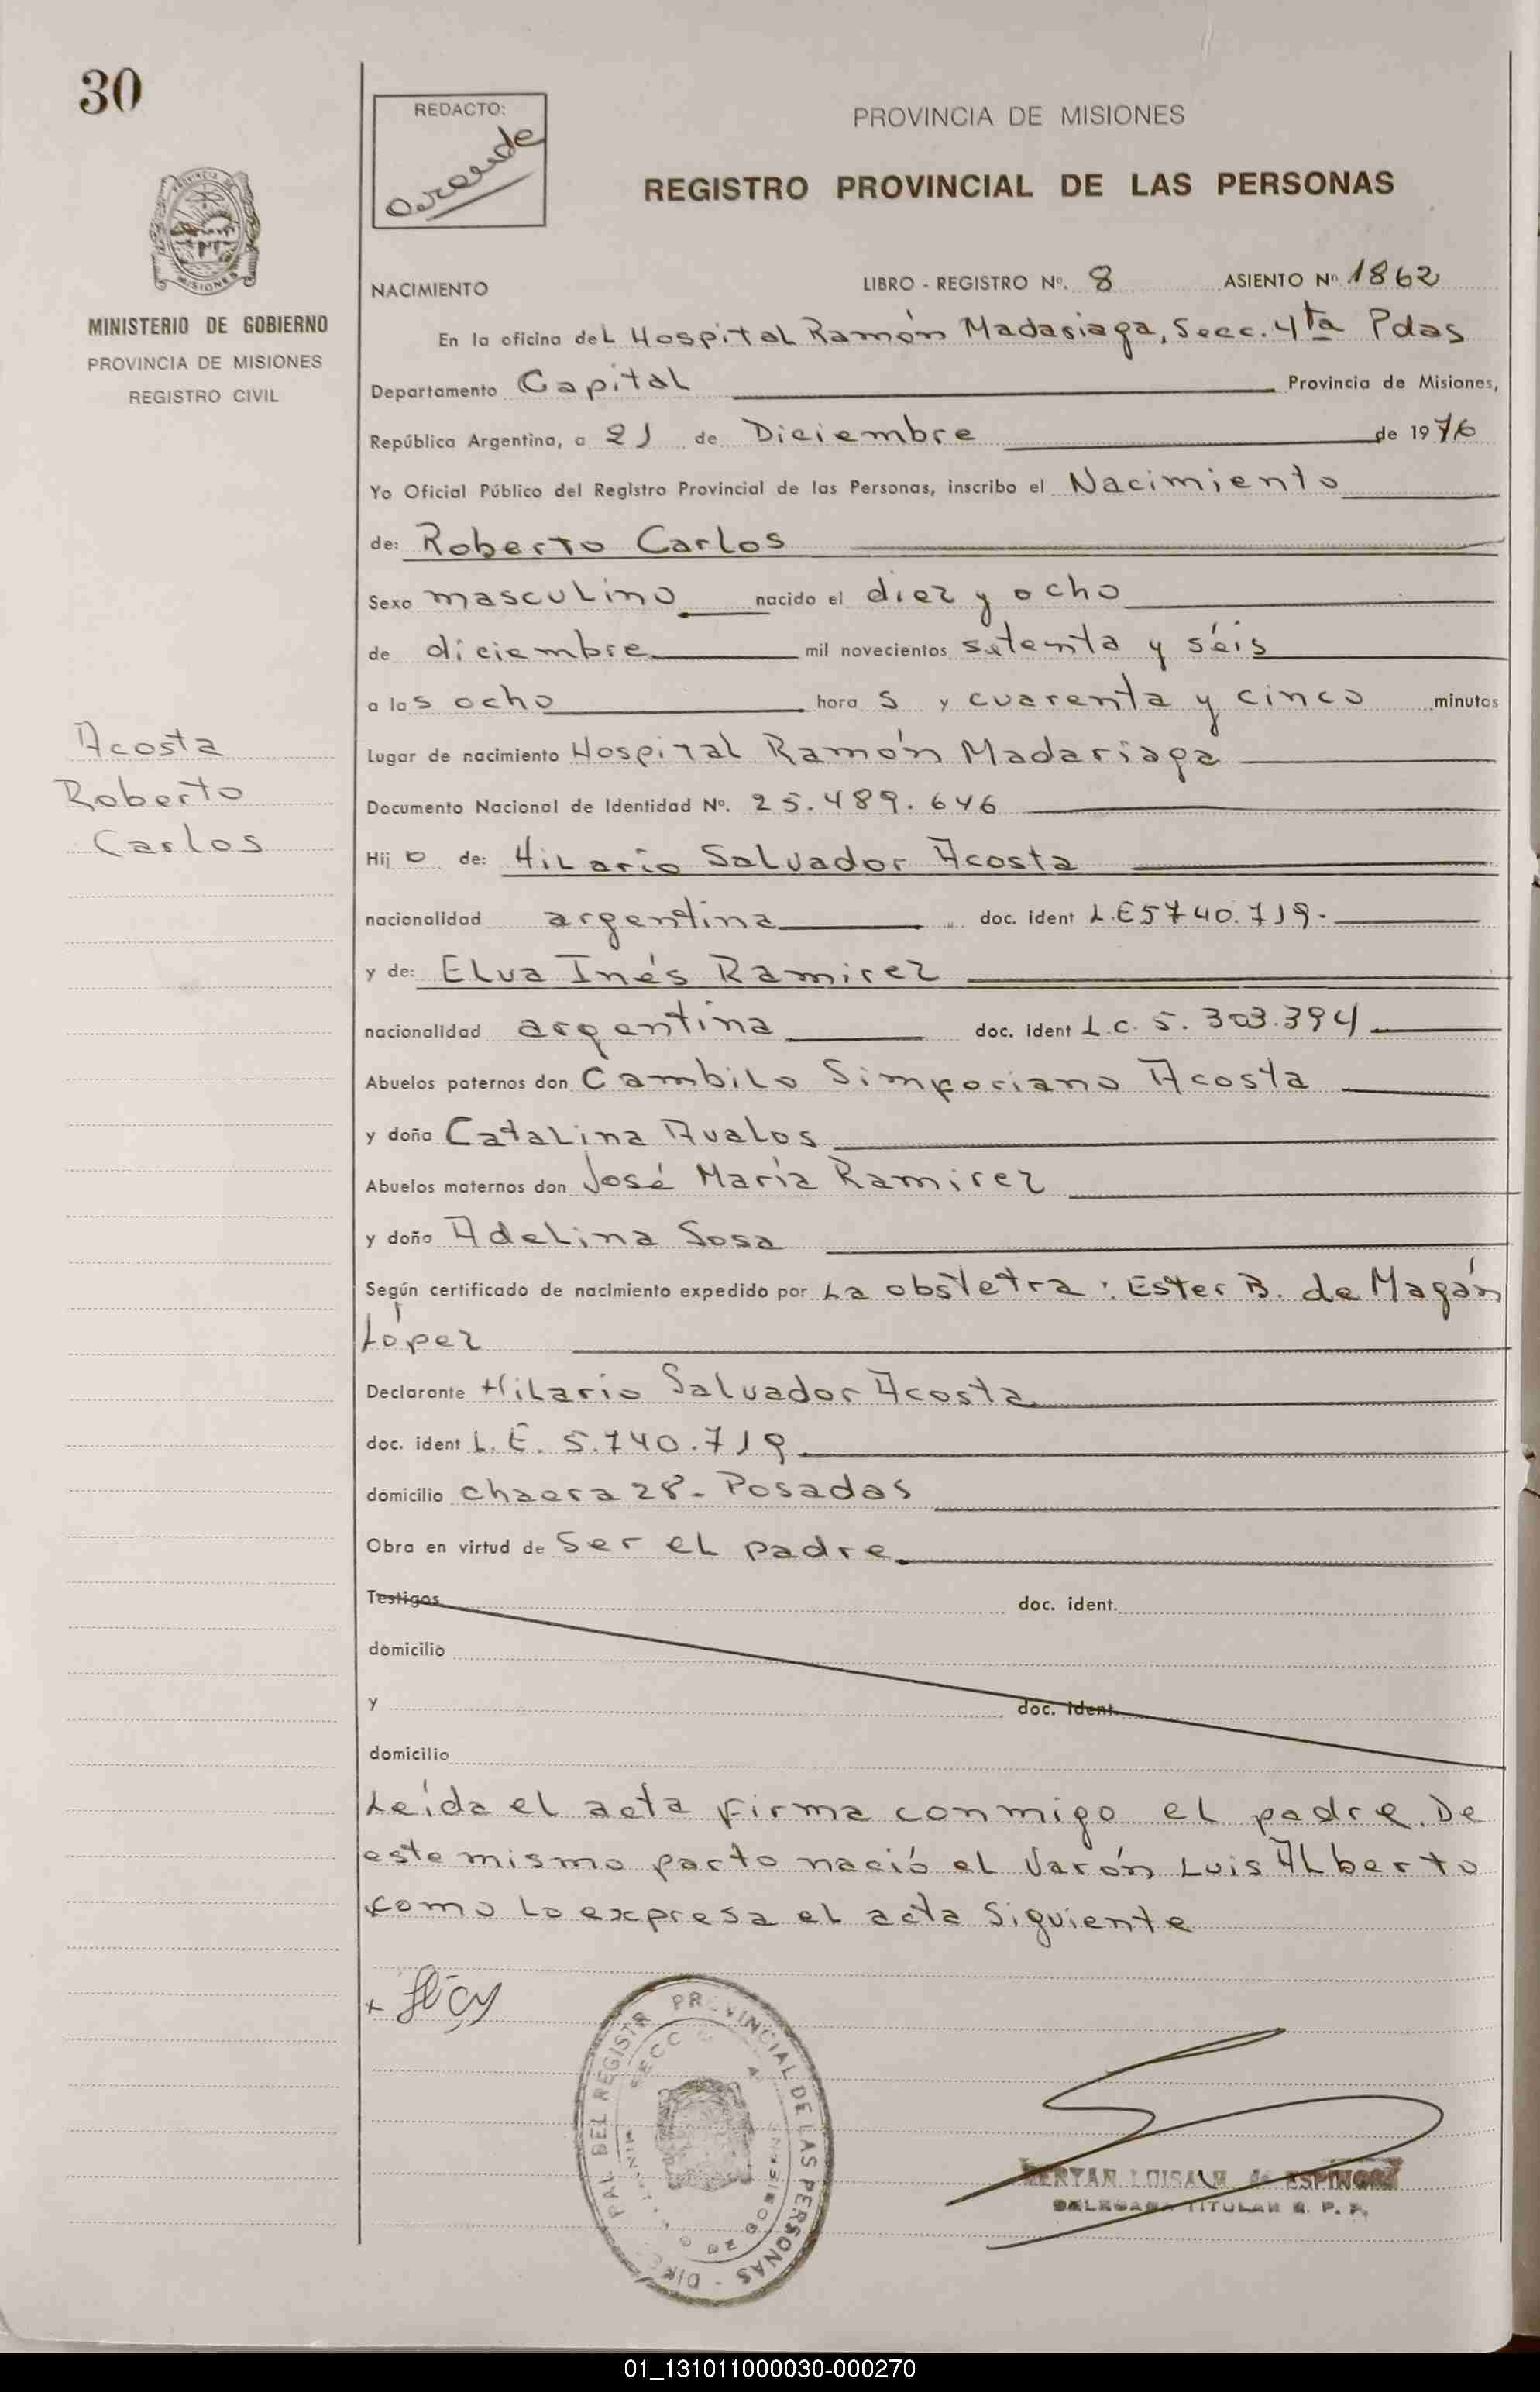 30
REDACTO:
PROVINCIA DE MISIONES
REGISTRO PROVINCIAL DE LAS PERSONAS
MISIONES
MINISTERIO DE GOBIERNO
PROVINCIA DE MISIONES
REGISTRO CIVIL
NACIMIENTO LIBRO - REGISTRO Nº. 8 ASIENTO Nº 1862
En la oficina del Hospital Ramón Madariaga, Secc. 4ta Pdas
Departamento Capital Provincia de Misiones,
República Argentina, a 21 de Diciembre de 1976
Yo Oficial Público del Registro Provincial de las Personas, inscribo el Nacimiento
de: Roberto Carlos
Sexo masculino nacido el diez y ocho
de diciembre mil novecientos setenta y séis
a las ocho hora s y cuarenta y cinco minutos
Acosta
Roberto
Carlos
Lugar de nacimiento Hospital Ramón Madariaga
Documento Nacional de Identidad Nº. 25.489.646
Hij o de: Hilario Salvador Acosta
nacionalidad argentina doc. ident L.E 5740.719.
y de: Elva Inés Ramirez
nacionalidad argentina doc. ident L.C. 5.303.394
Abuelos paternos don Cambilo Simforiano Acosta
y doña Catalina Avalos
Abuelos maternos don José María Ramirez
y doña Adelina Sosa
Según certificado de nacimiento expedido por La obstetra: Ester B. de Magán
López
Declarante Hilario Salvador Acosta
doc. ident L.E. 5.740.719
domicilio chacra 28- Posadas
Obra en virtud de ser el padre.
Testigos doc. ident.
domicilio
y doc. ident.
domicilio
Leída el acta firma conmigo el padre. De
este mismo parto nació el varón Luis Alberto
como lo expresa el acta siguiente
PROVINCIAL DE LAS PERSONAS - DIR
PAL DEL REGISTR
SECC
LUISA M. de ESPINOSA
DELEGADA TITULAR R. P. P.
01_131011000030-000270